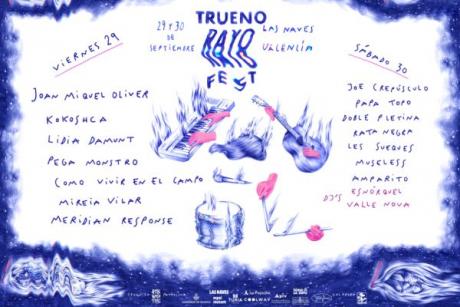 TRUENO
RAYO
FEST
29 Y 30
DE
SEPTIEMBRE
LAS NAVES
VALENCIA
VIERNES 29
JOAN MIQUEL OLIVER
KOKOSHCA
LIDIA DAMUNT
PEGA MONSTRO
COMO VIVIR EN EL CAMPO
MIREIA VILAR
MERIDIAN RESPONSE
SÁBADO 30
JOE CREPÚSCULO
PAPA TOPO
DOBLE PLETINA
RATA NEGRA
LES SUEQUES
MUSELESS
AMPARITO
DJ'S ESNÓRQUEL
VALLE NOVA
LAS NAVES
TURIA COOLWAY